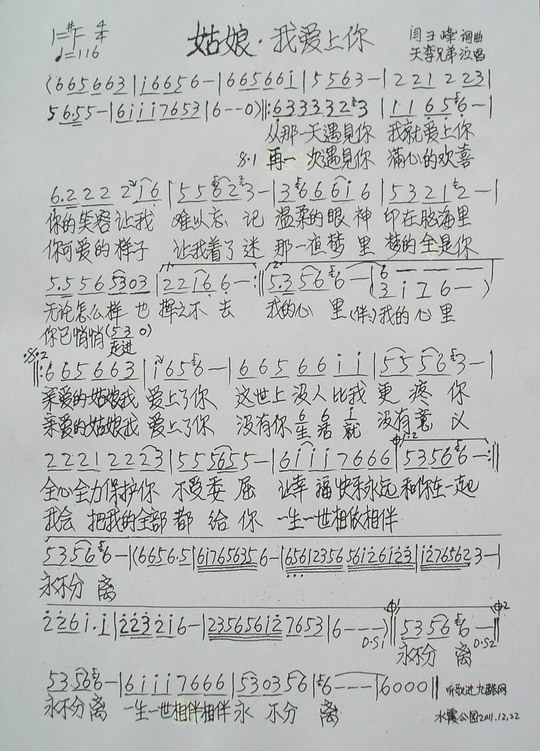 姑娘·我爱上你
1=#F 4/4
♩=116
闫玉峰 词曲
天李兄弟 演唱
(665663|i6656-|665661|5563-|221 223|
5655-|6iii7653|6--0)‖:6333323|11656-|
从那一天遇見你 我就爱上你
8.1 再一次遇見你 满心的欢喜
6.222 2i6|5 5 6 2 3-|366 6i6|5321 2-|
你的笑容让我 难以忘记 温柔的眼神 印在脑海里
你可爱的样子 让我着了迷 那一直梦里 梦的全是你
5.556 5303|22i6 6-:‖5.356 6-(6 - - -
3 i 7 6 -)
无论怎么样也 挥之不去 我的心里(伴)我的心里
你已悄悄(530)
走进
‖:665663|i656-|665 66ii|55563-|
亲爱的姑娘我 爱上了你 这世上没人比我 更疼你
亲爱的姑娘我 爱上了你 没有你生活就 没有意义
2221 2223|555655-|6iii7666|53566-:‖
全心全力保护你 不受委屈 让幸福快乐永远 和你在一起
我会把我的全部都给你 一生一世相依相伴
53566-|(6656.5|61765635 6-|6561235656i26i23|i27656 23-|
永不分离
226i.i|223 2i6-|235656i2 7653|6---)‖53566-‖
D.S1 D.S2
永不分离
53566-|6iii7666|530356|6---|6000‖
永不分离 一生一世相伴相伴永不分离
听歌进九酷网
水霞公园2011.12.22